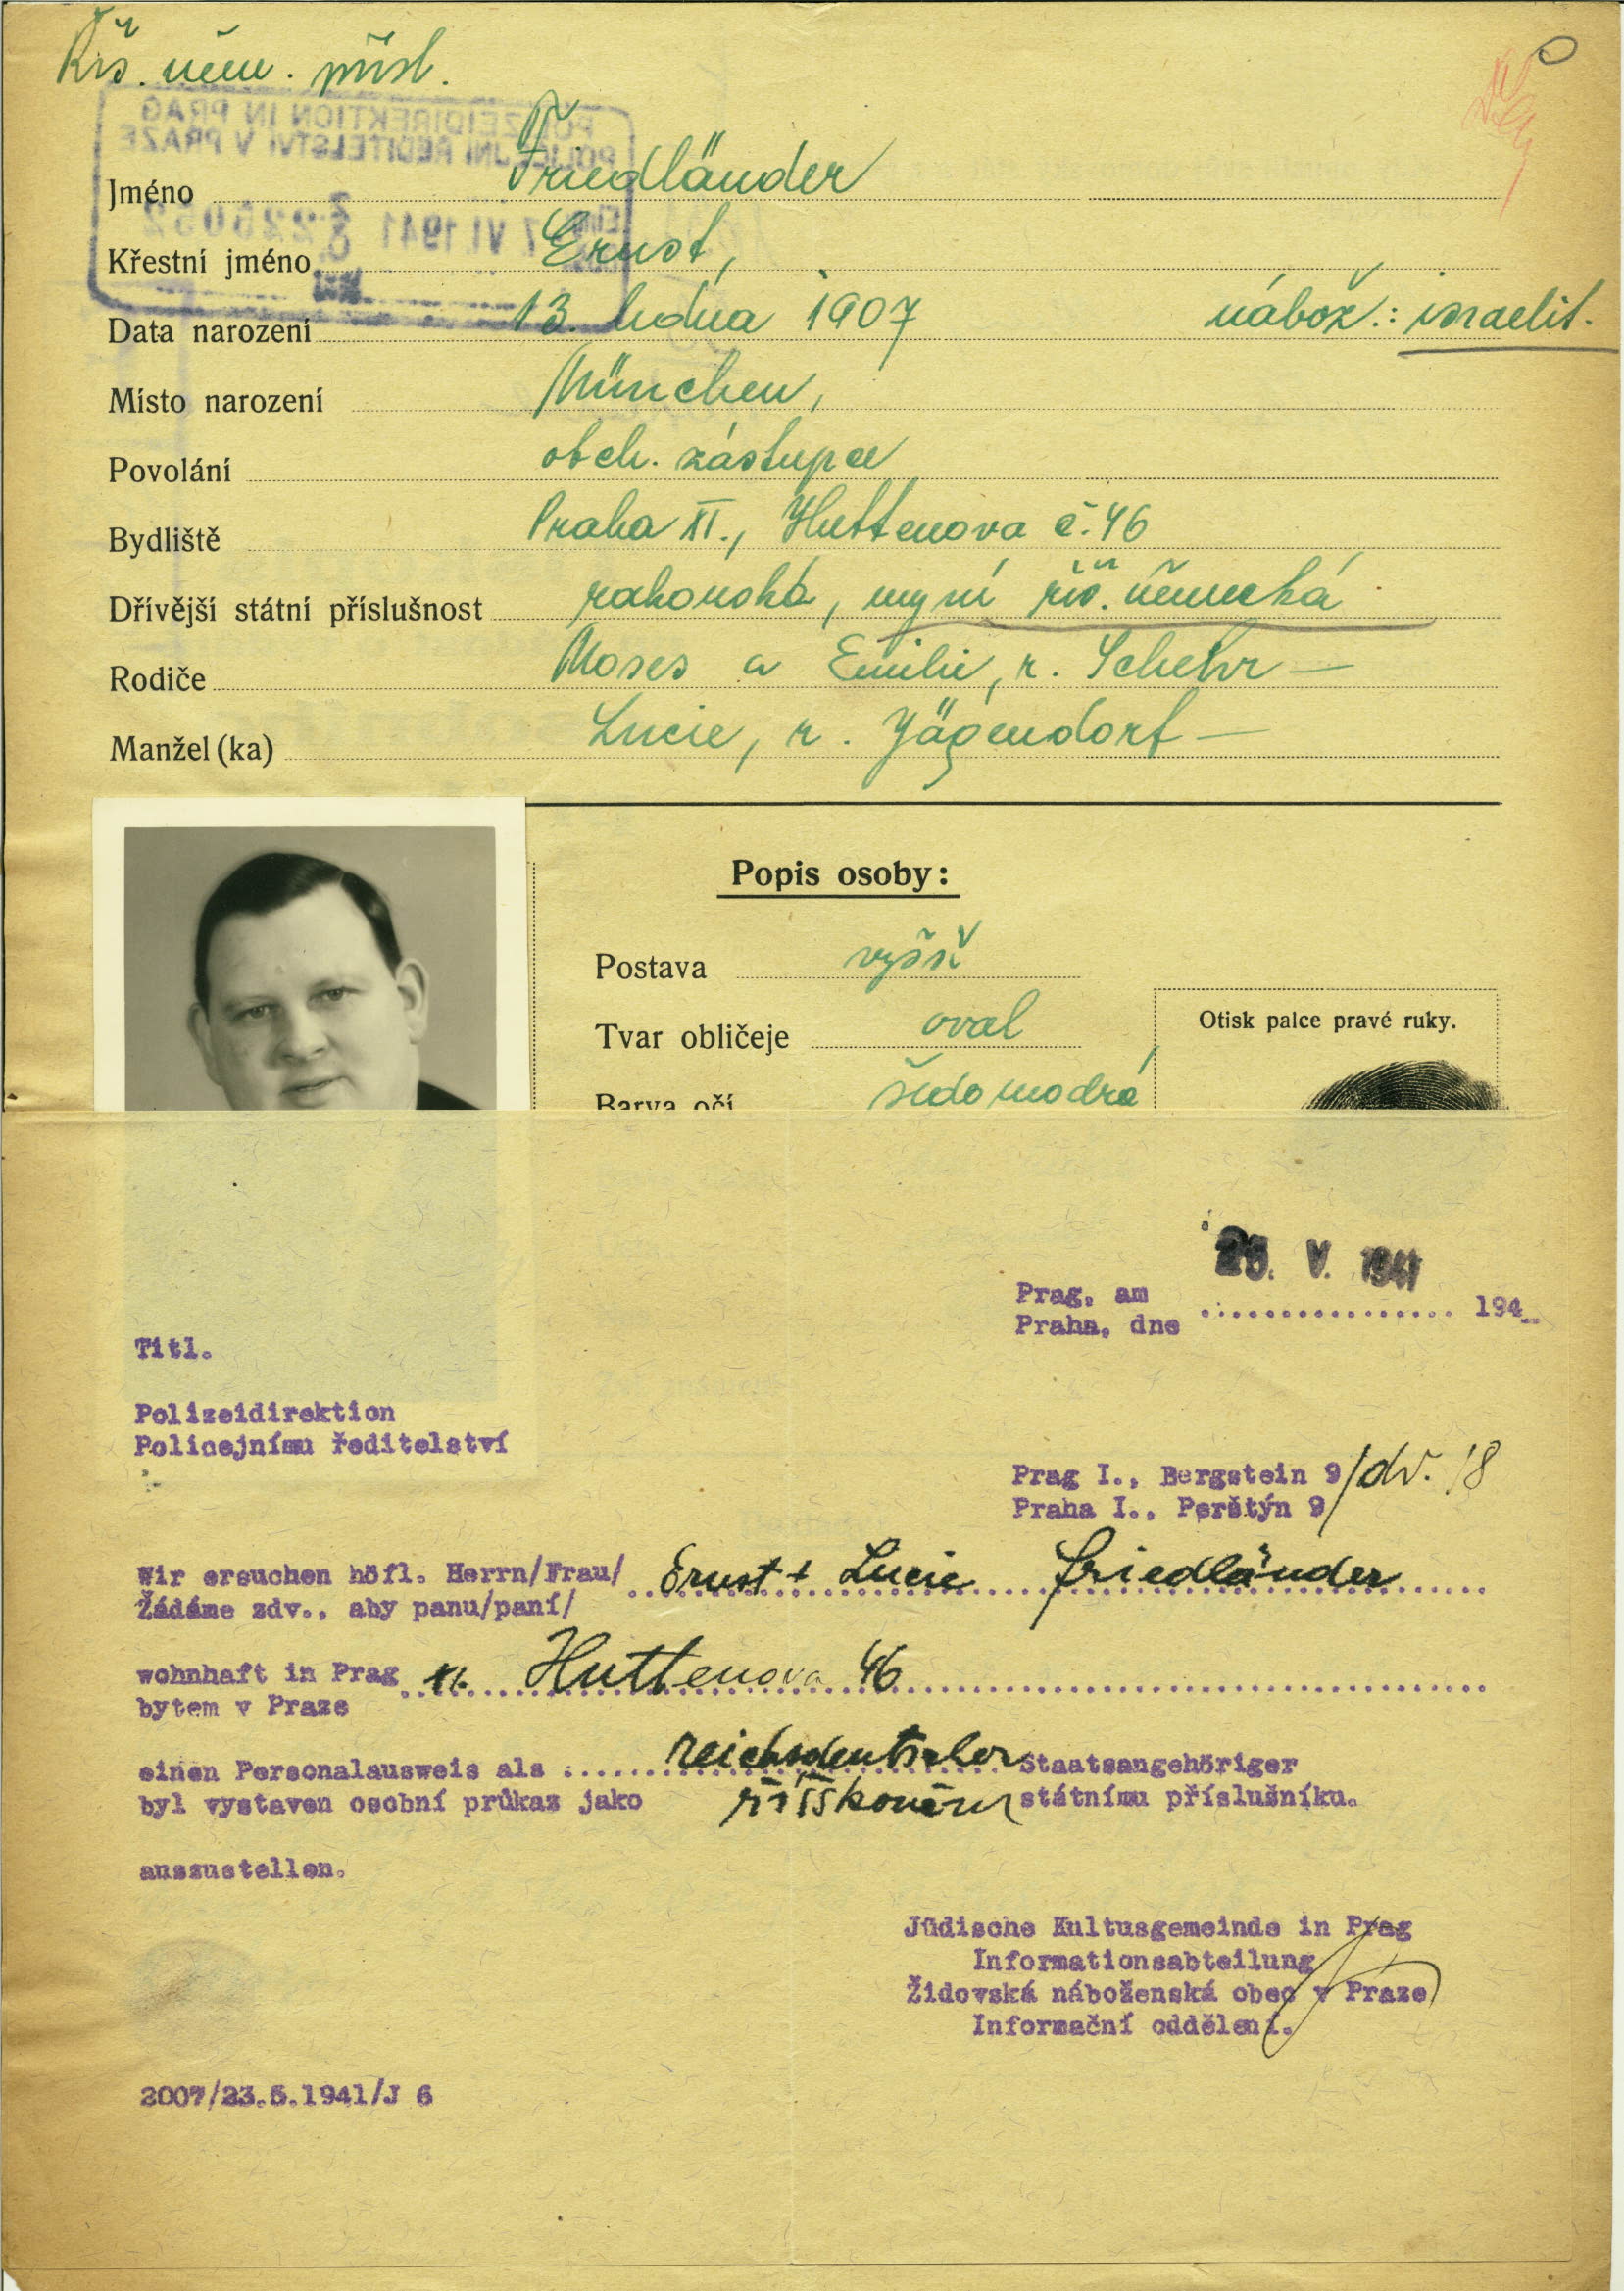 Říš. něm. přísl.
POLIZEIDIREKTION IN PRAG
POLICEJNÍ ŘEDITELSTVÍ V PRAZE
7 VI 1941
Jméno Friedländer
Křestní jméno Ernst,
Data narození 13. ledna 1907 nábož.: israelit.
Místo narození München,
Povolání obch. zástupce
Bydliště Praha XI., Huttenova č. 46
Dřívější státní příslušnost rakouská, nyní říš. německá
Rodiče Moses a Emilie, r. Schehr —
Manžel(ka) Lucie, r. Jägendorf —
Popis osoby:
Postava vyšší
Tvar obličeje oval
Otisk palce pravé ruky.
Barva očí šedomodré
V. 1941
Prag, am
Praha, dne 194
Titl.
Polizeidirektion
Policejnímu ředitelství
Prag I., Bergstein 9/dv. 18
Praha I., Perštýn 9
Wir ersuchen höfl. Herrn/Frau/ Ernst + Lucie Friedländer
Žádáme zdv., aby panu/paní/
wohnhaft in Prag XI. Huttenova 46
bytem v Praze
einen Personalausweis als reichsdeutscher Staatsangehöriger
byl vystaven osobní průkaz jako říškoněm státnímu příslušníku.
auszustellen.
Jüdische Kultusgemeinde in Prag
Informationsabteilung
Židovská náboženská obec v Praze
Informační oddělení.
2007/23.5.1941/J 6